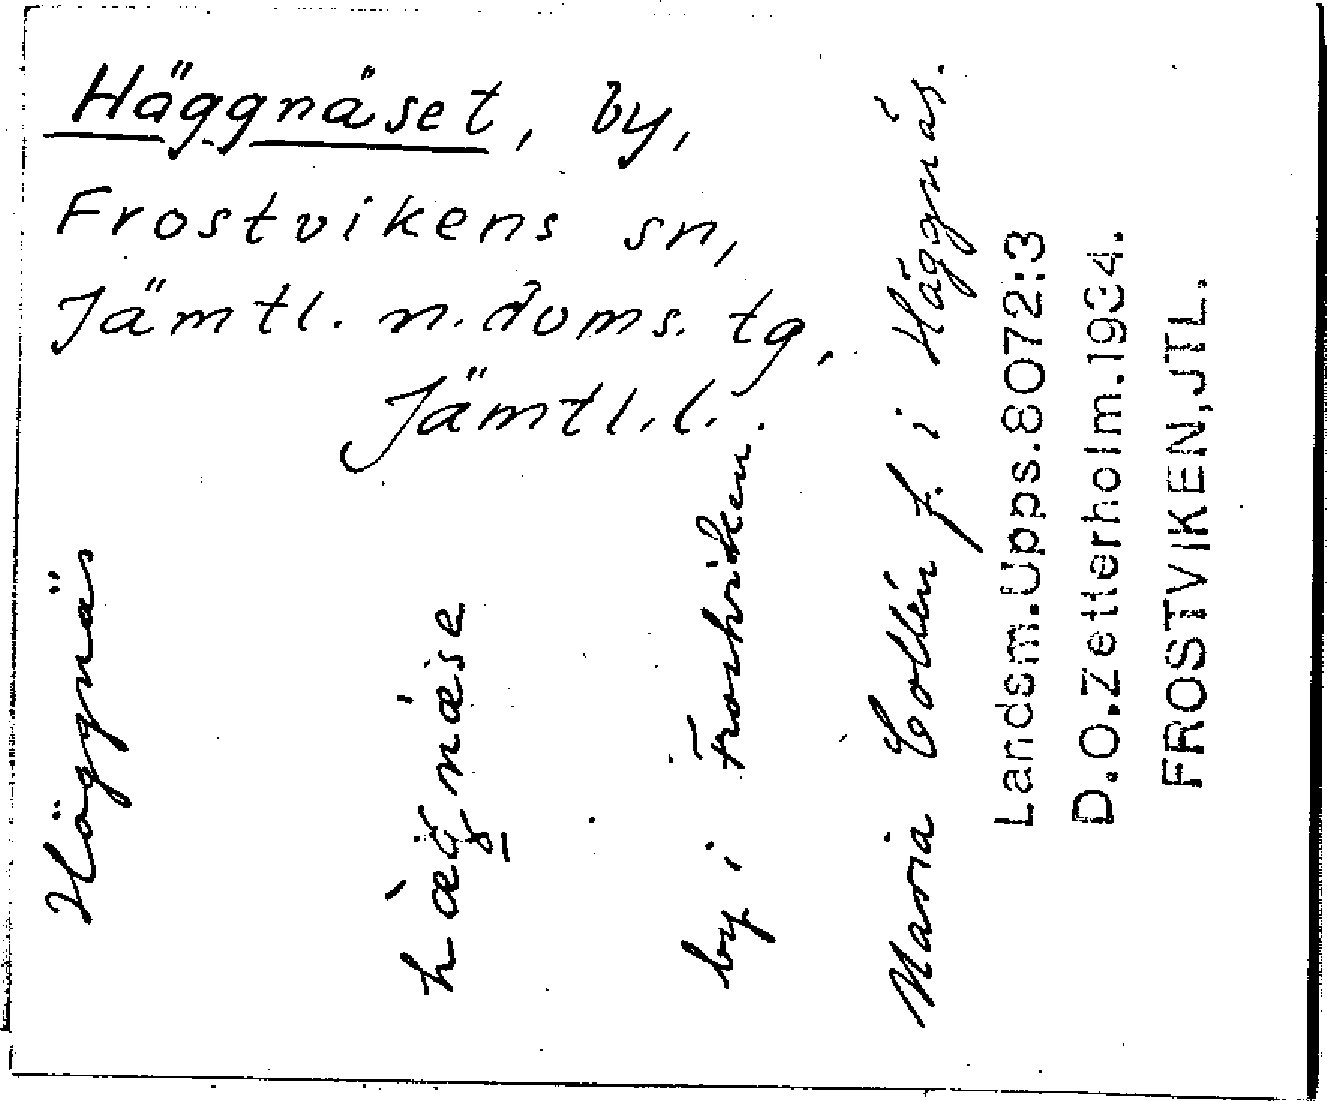 Häggnäset, by,
Frostvikens sn,
Jämtl. n. doms. tg,
Jämtl. l.
Häggnäs
hæg̱næse
by i Frostviken
Maria Collén f. i Häggnäs.
Landsm. Upps. 8072:3
D.O. Zetterholm. 1934.
FROSTVIKEN, JTL.